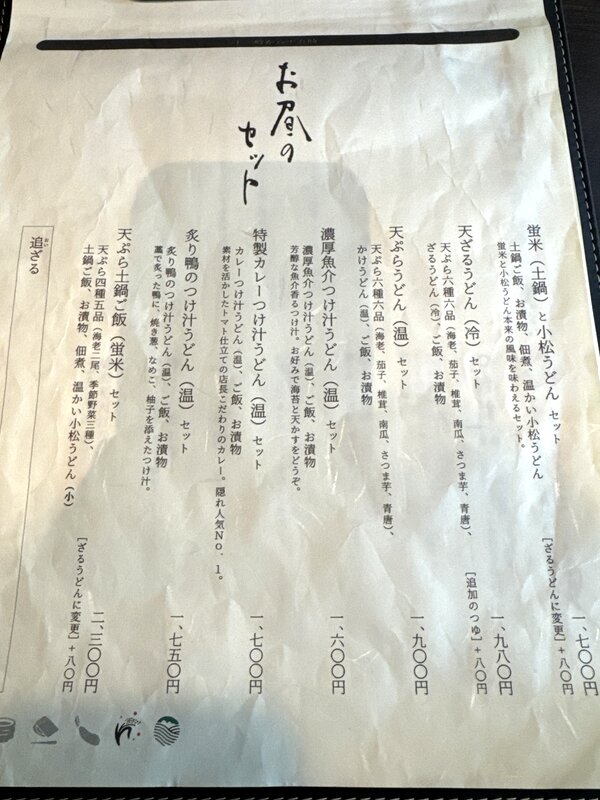 お昼の
セット
蛍米（土鍋）と小松うどん セット
土鍋ご飯、お漬物、佃煮、温かい小松うどん
蛍米と小松うどん本来の風味を味わえるセット。
一、七〇〇円
［ざるうどんに変更］＋八〇円
天ざるうどん（冷）セット
天ぷら六種六品（海老、茄子、椎茸、南瓜、さつま芋、青唐）、
ざるうどん（冷）、ご飯、お漬物
一、九八〇円
［追加のつゆ］＋八〇円
天ぷらうどん（温）セット
天ぷら六種六品（海老、茄子、椎茸、南瓜、さつま芋、青唐）、
かけうどん（温）、ご飯、お漬物
一、九〇〇円
濃厚魚介つけ汁うどん（温）セット
濃厚魚介つけ汁うどん（温）、ご飯、お漬物
芳醇な魚介香るつけ汁。お好みで海苔と天かすをどうぞ。
一、六〇〇円
特製カレーつけ汁うどん（温）セット
カレーつけ汁うどん（温）、ご飯、お漬物
素材を活かしたトマト仕立ての店長こだわりのカレー。隠れ人気No．1。
一、七〇〇円
炙り鴨のつけ汁うどん（温）セット
炙り鴨のつけ汁うどん（温）、ご飯、お漬物
藁で炙った鴨に、焼き葱、なめこ、柚子を添えたつけ汁。
一、七五〇円
天ぷら土鍋ご飯（蛍米）セット
天ぷら四種五品（海老二尾、季節野菜三種）、
土鍋ご飯、お漬物、佃煮、温かい小松うどん（小）
二、三〇〇円
［ざるうどんに変更］＋八〇円
追ざる
おい